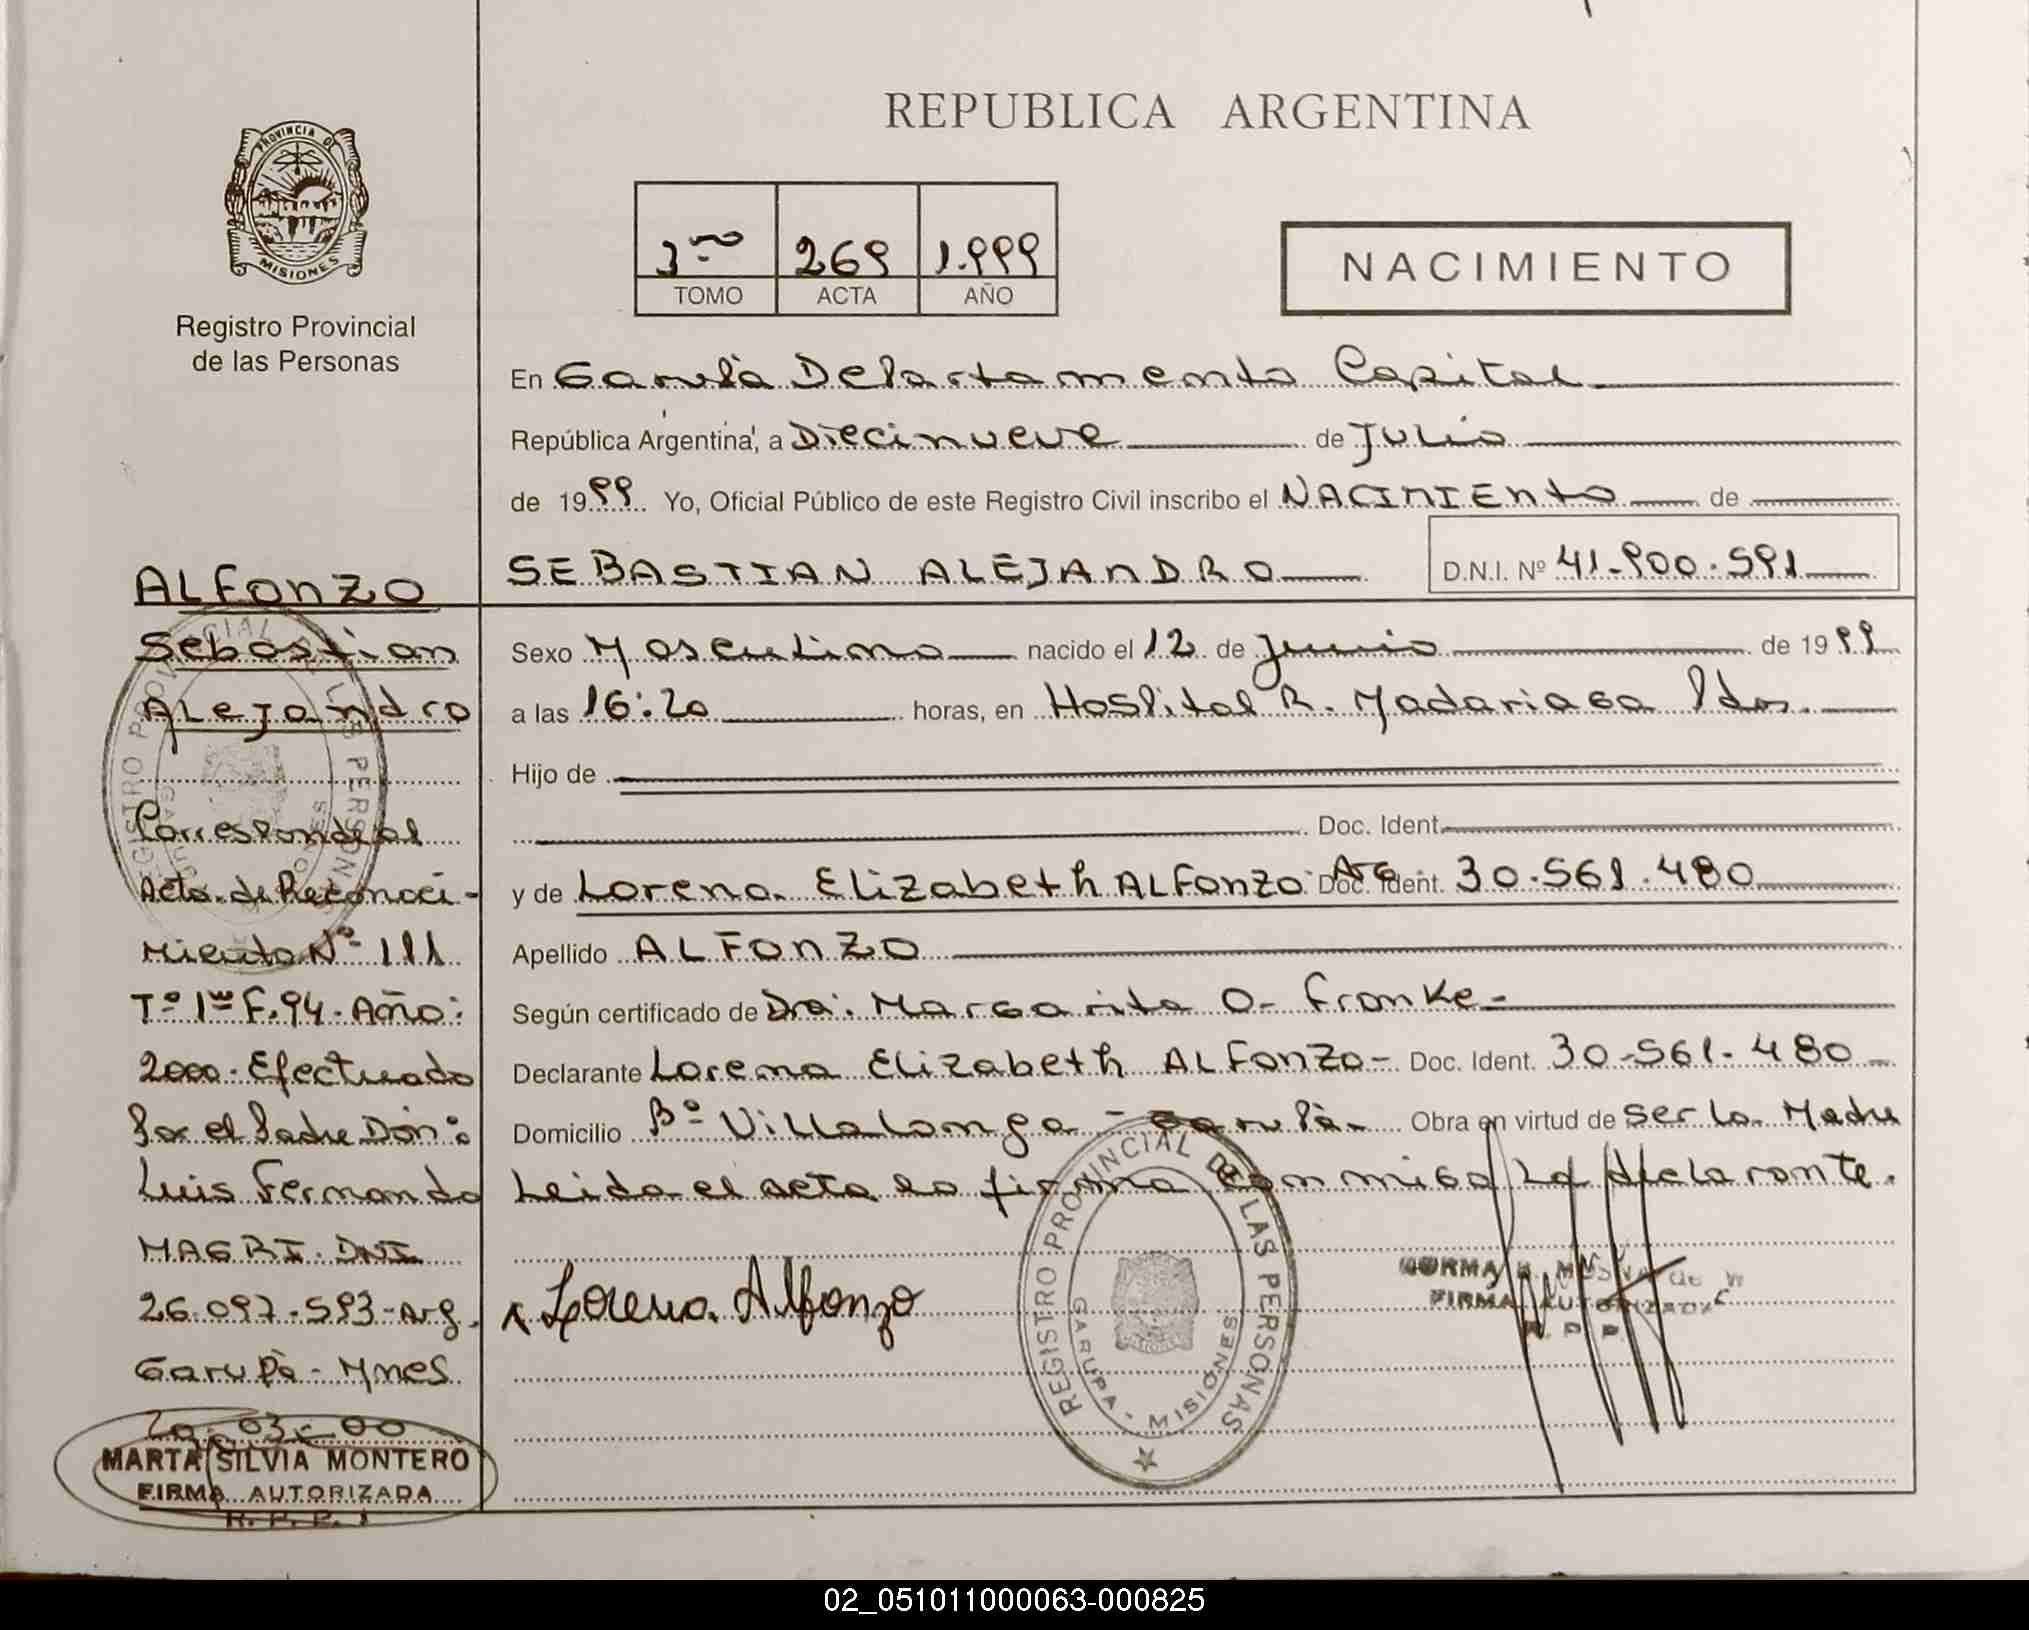 REPUBLICA ARGENTINA
PROVINCIA DE
MISIONES
Registro Provincial
de las Personas
3ro 269 1.999
TOMO ACTA AÑO
NACIMIENTO
En Garupá Departamento Capital
República Argentina, a Diecinueve de Julio
de 1999 Yo, Oficial Público de este Registro Civil inscribo el NACIMIENTO de
SEBASTIAN ALEJANDRO D.N.I. Nº 41.900.591
Sexo Masculino nacido el 12 de Junio de 1999
a las 16:20 horas, en Hospital R. Madariaga Pdas.
Hijo de
Doc. Ident.
y de Lorena Elizabeth ALFONZO Arg. Doc. Ident. 30.561.480
Apellido ALFONZO
Según certificado de Dra. Margarita O. Franke-
Declarante Lorena Elizabeth ALFONZO- Doc. Ident. 30-561-480
Domicilio Bº Villalonga - Garupá- Obra en virtud de ser la Madre
Leida el acta la firma conmigo La declarante.
x Lorena Alfonzo
REGISTRO PROVINCIAL DE LAS PERSONAS
GARUPA - MISIONES
FIRMA AUTORIZADA
R. P. P.
ALFONZO
Sebastian
Alejandro
REGISTRO PROVINCIAL DE LAS PERSONAS
Corresponde al
Acta de Reconoci-
miento Nº 111
Tº 1ro F.94 - Año:
2000 - Efectuado
Por el Padre Don:
Luis Fernando
MAGRI. DNI
26.097.593-Arg.
Garupá - Mnes
20-03-00
MARTA SILVIA MONTERO
FIRMA AUTORIZADA
R. P. P.
02_051011000063-000825